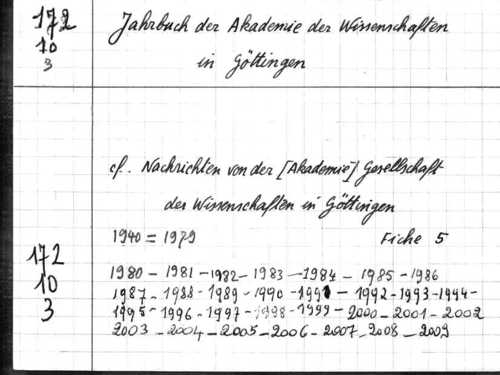 172
10
3
Jahrbuch der Akademie der Wissenschaften
in Göttingen
cf. Nachrichten von der [Akademie] Gesellschaft
der Wissenschaften in Göttingen
1940 = 1979 Fiche 5
172
10
3
1980 - 1981 - 1982 - 1983 - 1984 - 1985 - 1986
1987 - 1988 - 1989 - 1990 - 1991 - 1992 - 1993 - 1994 -
1995 - 1996 - 1997 - 1998 - 1999 - 2000 - 2001 - 2002
2003 - 2004 - 2005 - 2006 - 2007 - 2008 - 2009